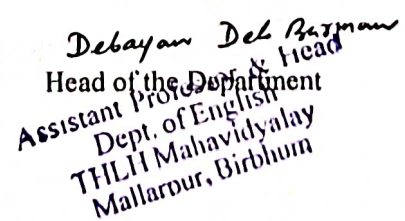 Debayan Deb Barman
Head of the Department
Assistant Professor & Head
Dept. of English
THLH Mahavidyalay
Mallarpur, Birbhum